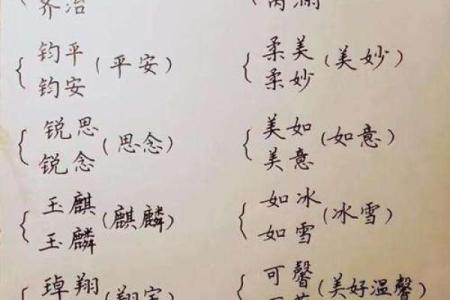 齐治
钧平
钧安
(平安)
锐思
锐念
(思念)
玉麒
玉麟
(麒麟)
琸翔
柔美
柔妙
(美妙)
美如
美意
(如意)
如冰
如雪
(冰雪)
可馨
(美好温馨)